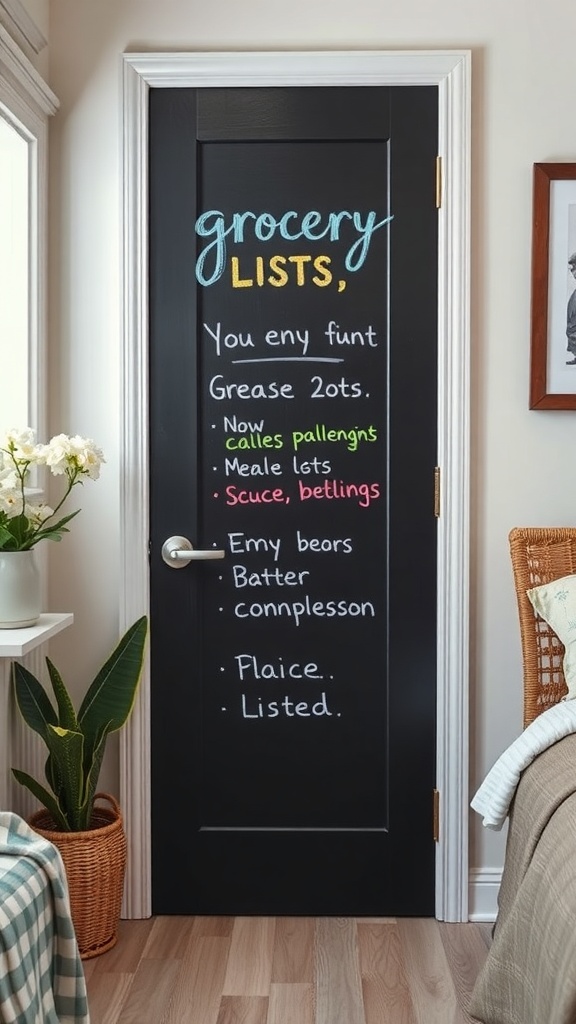 grocery
LISTS,
You eny funt
Grease 2ots.
· Now
calles pallengnts
· Meale lsts
· Scuce, betlings
· Emy beors
· Batter
· connplesson
· Flaice..
· Listed.